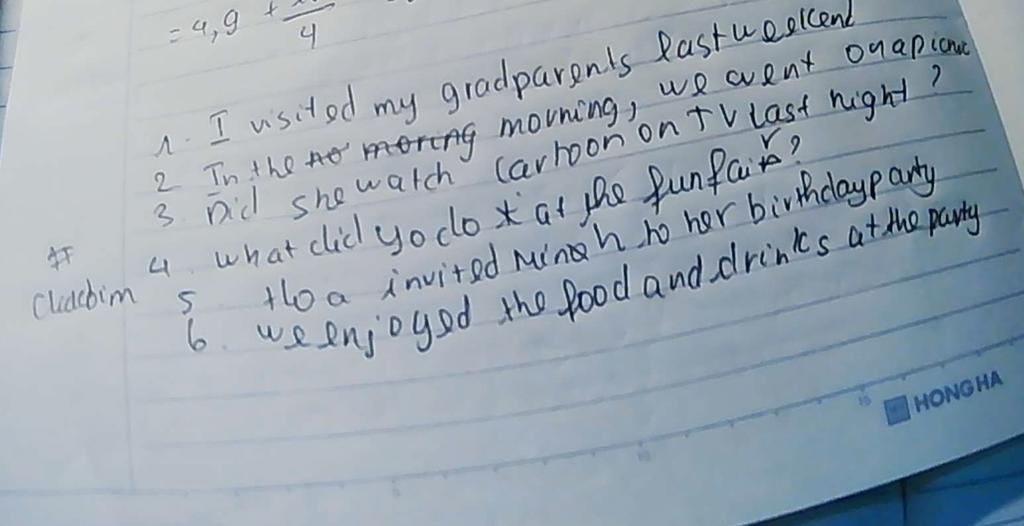 = 4,9 + 4
1. I visited my gradparents last weekend
2 In the morning morning, we went on a picnic
3. Did she watch Cartoon on TV last night ?
4. what did yo do at the funfair ?
5 Hoa invited Minh to her birthday party
6. we enjoyed the food and drinks at the party
HONG HA